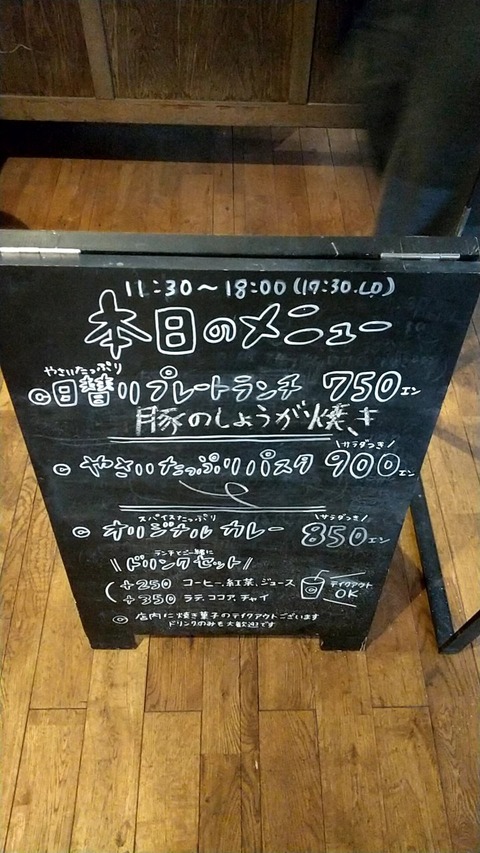 11:30～18:00(17:30.LO)
本日のメニュー
やさいたっぷり
日替りプレートランチ 750エン
豚のしょうが焼き
\サラダつき/
やさいたっぷりパスタ 900エン
スパイスたっぷり \サラダつき/
オリジナルカレー 850エン
ランチと一緒に
\\ドリンクセット//
+250 コーヒー、紅茶、ジュース
+350 ラテ、ココア、チャイ
テイクアウト
OK
店内に焼き菓子のテイクアウトございます
ドリンクのみも大歓迎です